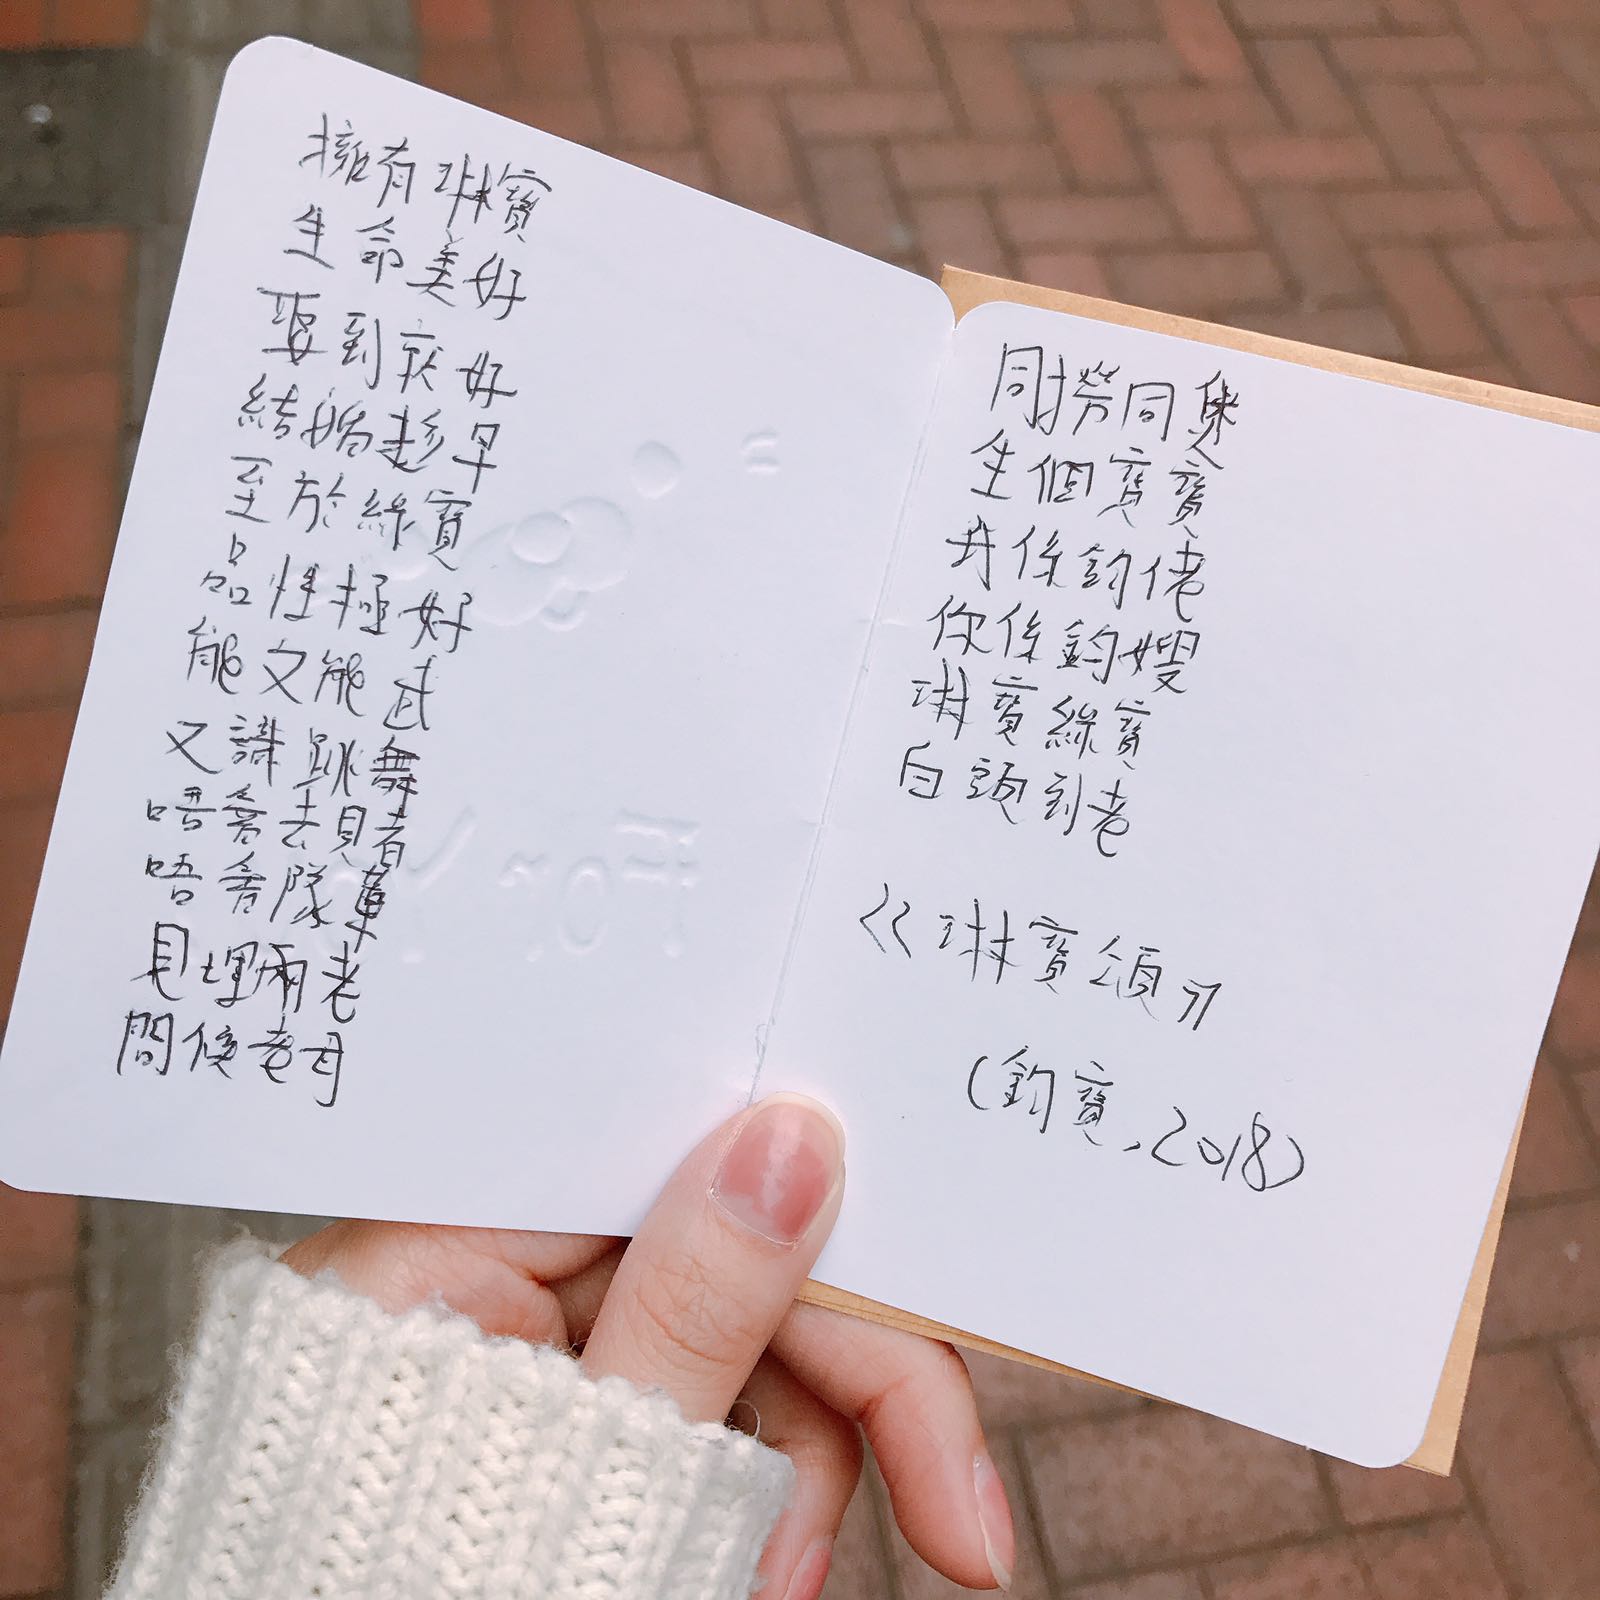 擁有琳寶
生命美好
娶到就好
結婚趁早
至於綠寶
品性極好
能文能武
又識跳舞
唔會去賭
唔會隊草
見埋兩老
問候老母
同撈同煲
生個寶寶
我係鈞佬
你係鈞嫂
琳寶綠寶
白頭到老
《琳寶頌》
(鈞寶, 2018)